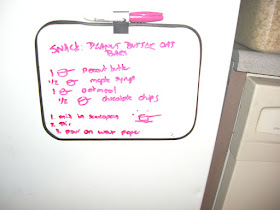 SNACK: PEANUT BUTTER OAT
BARS
1 peanut butter
1/2 maple syrup
1 oatmeal
1/2 chocolate chips
1. melt in saucepan
2. Stir
3. pour on wax paper